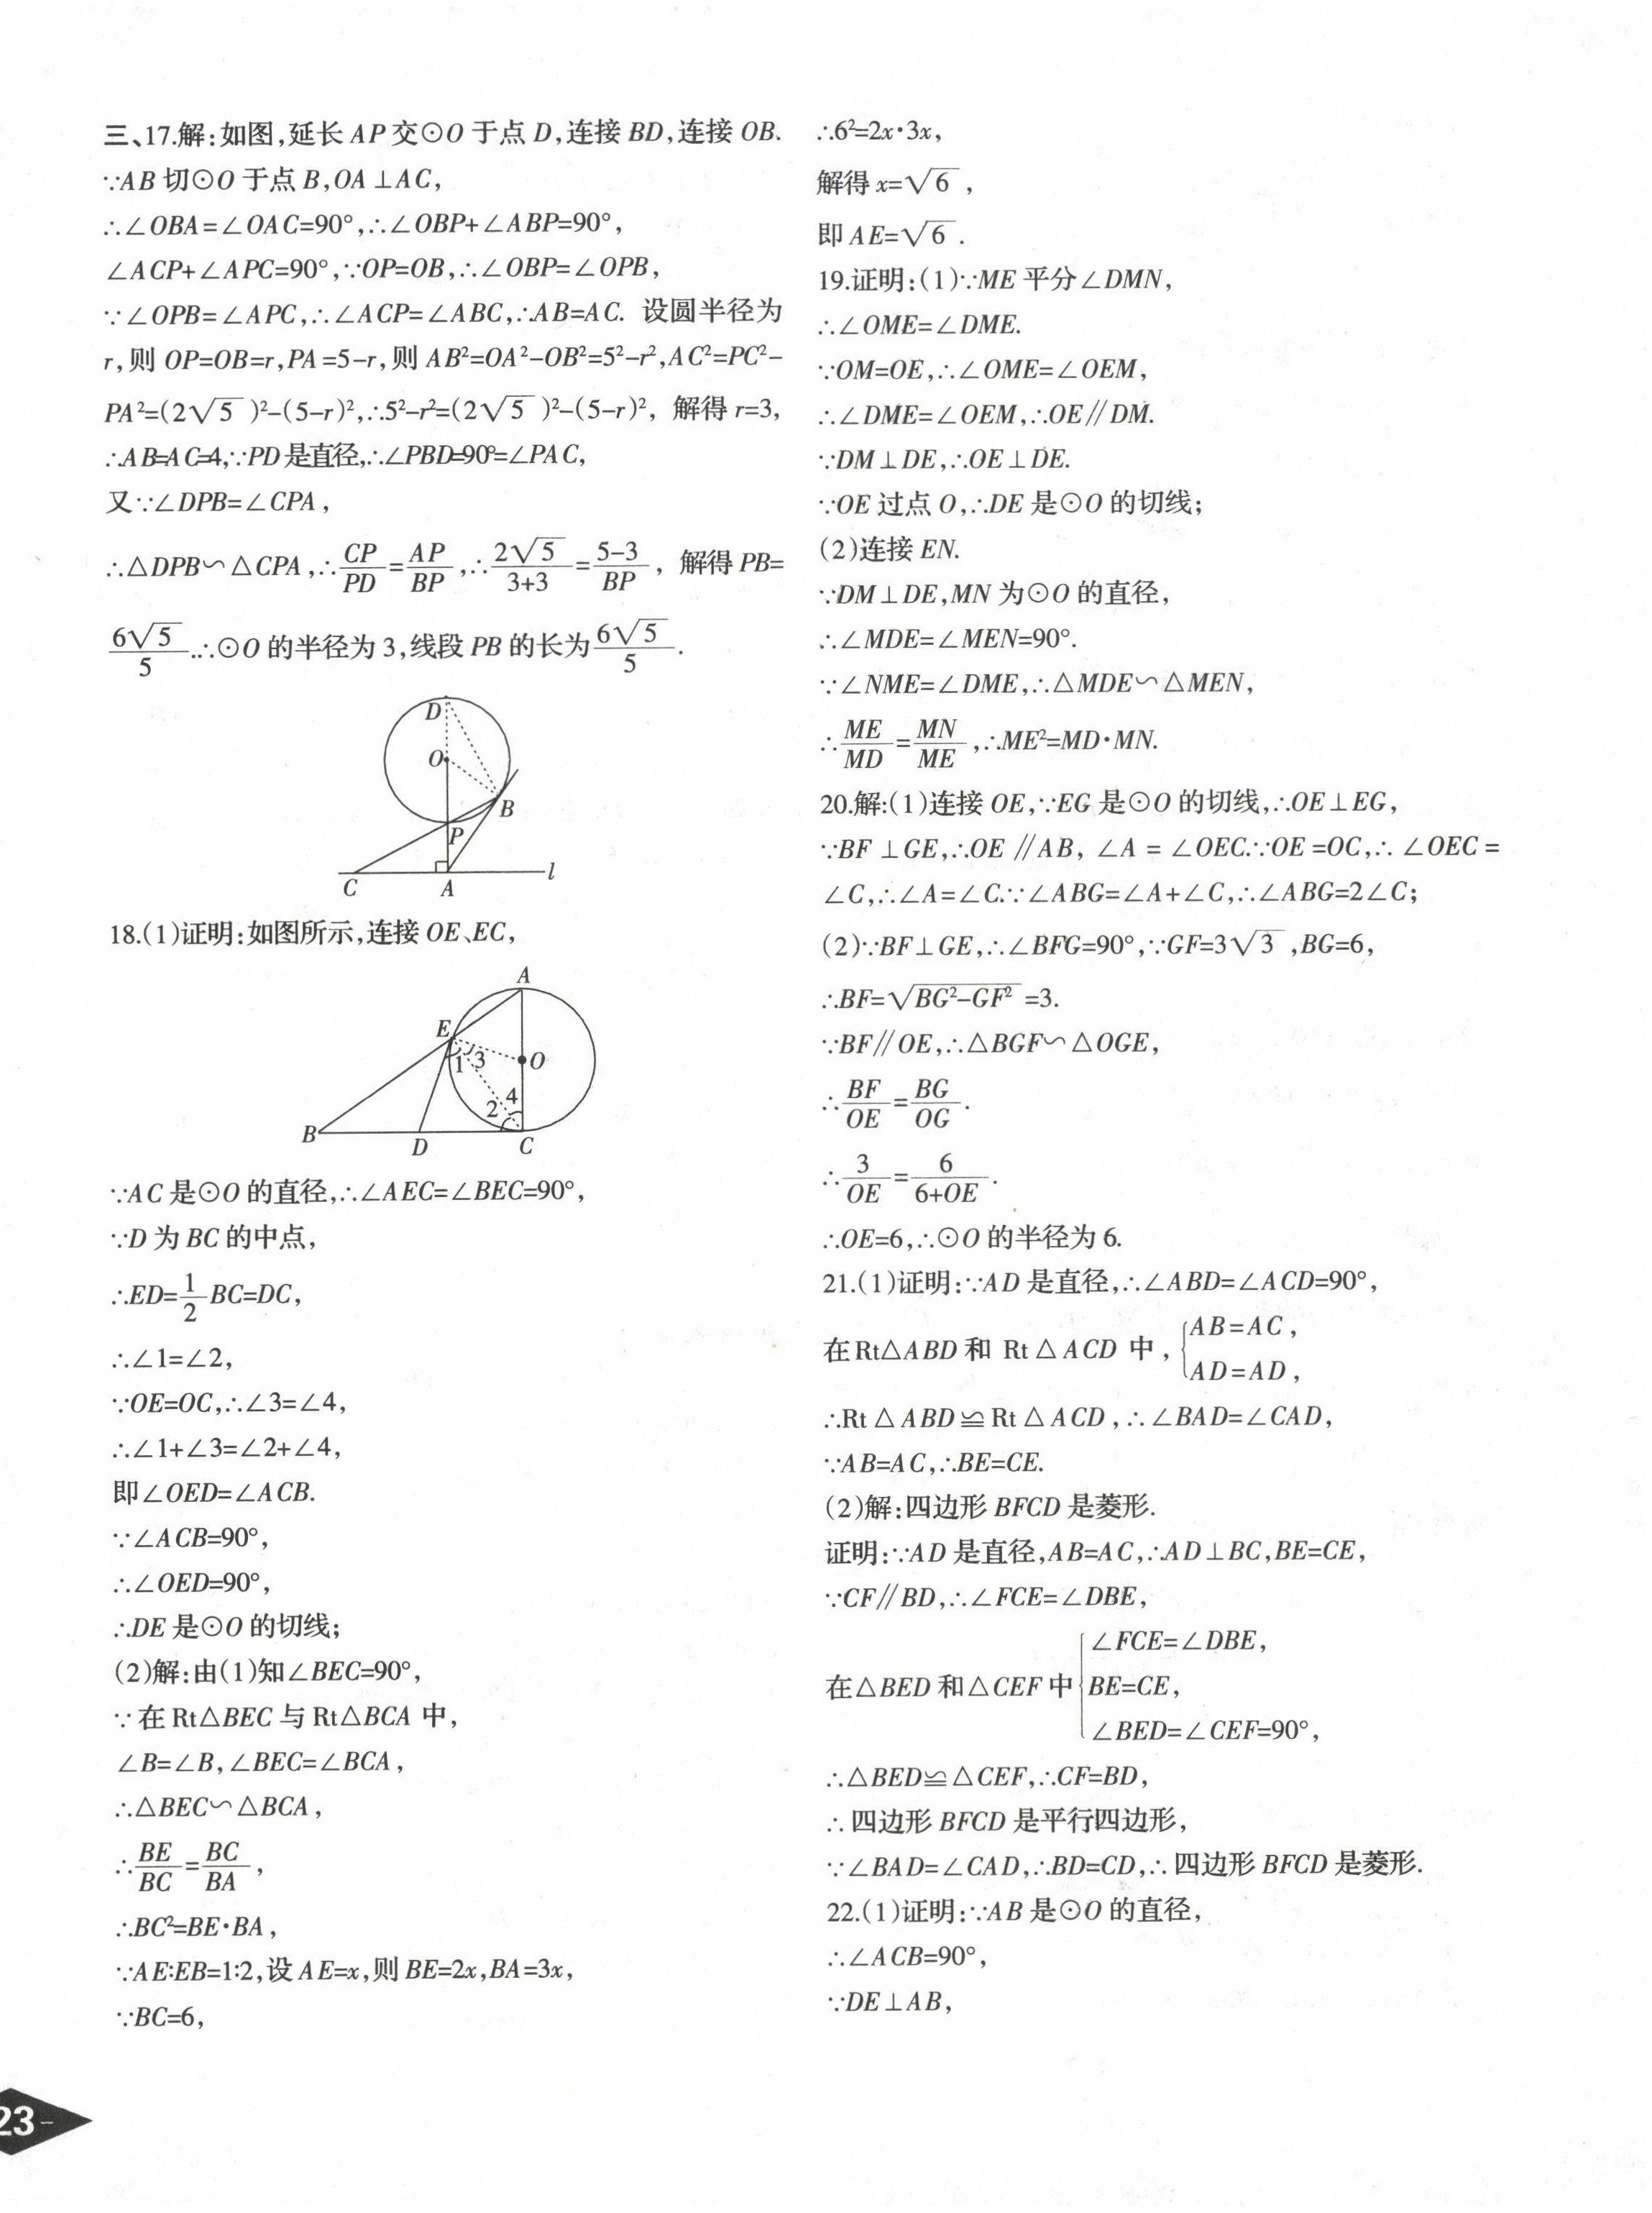 三、17.解:如图,延长 AP 交⊙O 于点 D,连接 BD,连接 OB.
∵AB 切⊙O 于点 B,OA⊥AC,
∴∠OBA=∠OAC=90°,∴∠OBP+∠ABP=90°,
∠ACP+∠APC=90°,∵OP=OB,∴∠OBP=∠OPB,
∵∠OPB=∠APC,∴∠ACP=∠ABC,∴AB=AC. 设圆半径为
r,则 OP=OB=r,PA=5-r,则 AB²=OA²-OB²=5²-r²,AC²=PC²-
PA²=(2√5)²-(5-r)²,∴5²-r²=(2√5)²-(5-r)², 解得 r=3,
∴AB=AC=4,∵PD 是直径,∴∠PBD=90°=∠PAC,
又∵∠DPB=∠CPA,
∴△DPB∽△CPA,∴CP/PD=AP/BP,∴2√5/(3+3)=(5-3)/BP, 解得 PB=
6√5/5.∴⊙O 的半径为 3,线段 PB 的长为 6√5/5.
D
O
B
P
C
A
l
18.(1)证明:如图所示,连接 OE、EC,
A
E
1
3
O
4
2
B
D
C
∵AC 是⊙O 的直径,∴∠AEC=∠BEC=90°,
∵D 为 BC 的中点,
∴ED=1/2 BC=DC,
∴∠1=∠2,
∵OE=OC,∴∠3=∠4,
∴∠1+∠3=∠2+∠4,
即∠OED=∠ACB.
∵∠ACB=90°,
∴∠OED=90°,
∴DE 是⊙O 的切线;
(2)解:由(1)知∠BEC=90°,
∵在 Rt△BEC 与 Rt△BCA 中,
∠B=∠B,∠BEC=∠BCA,
∴△BEC∽△BCA,
∴BE/BC=BC/BA,
∴BC²=BE·BA,
∵AE∶EB=1∶2,设 AE=x,则 BE=2x,BA=3x,
∵BC=6,
∴6²=2x·3x,
解得 x=√6,
即 AE=√6.
19.证明:(1)∵ME 平分∠DMN,
∴∠OME=∠DME.
∵OM=OE,∴∠OME=∠OEM,
∴∠DME=∠OEM,∴OE∥DM.
∵DM⊥DE,∴OE⊥DE.
∵OE 过点 O,∴DE 是⊙O 的切线;
(2)连接 EN.
∵DM⊥DE,MN 为⊙O 的直径,
∴∠MDE=∠MEN=90°.
∵∠NME=∠DME,∴△MDE∽△MEN,
∴ME/MD=MN/ME,∴ME²=MD·MN.
20.解:(1)连接 OE,∵EG 是⊙O 的切线,∴OE⊥EG,
∵BF⊥GE,∴OE∥AB, ∠A=∠OEC.∵OE=OC,∴∠OEC=
∠C,∴∠A=∠C.∵∠ABG=∠A+∠C,∴∠ABG=2∠C;
(2)∵BF⊥GE,∴∠BFG=90°,∵GF=3√3,BG=6,
∴BF=√(BG²-GF²)=3.
∵BF∥OE,∴△BGF∽△OGE,
∴BF/OE=BG/OG.
∴3/OE=6/(6+OE).
∴OE=6,∴⊙O 的半径为 6.
21.(1)证明:∵AD 是直径,∴∠ABD=∠ACD=90°,
在 Rt△ABD 和 Rt△ACD 中,{AB=AC,
AD=AD,
∴Rt△ABD≌Rt△ACD,∴∠BAD=∠CAD,
∵AB=AC,∴BE=CE.
(2)解:四边形 BFCD 是菱形.
证明:∵AD 是直径,AB=AC,∴AD⊥BC,BE=CE,
∵CF∥BD,∴∠FCE=∠DBE,
在△BED 和△CEF 中{∠FCE=∠DBE,
BE=CE,
∠BED=∠CEF=90°,
∴△BED≌△CEF,∴CF=BD,
∴四边形 BFCD 是平行四边形,
∵∠BAD=∠CAD,∴BD=CD,∴四边形 BFCD 是菱形.
22.(1)证明:∵AB 是⊙O 的直径,
∴∠ACB=90°,
∵DE⊥AB,
23-